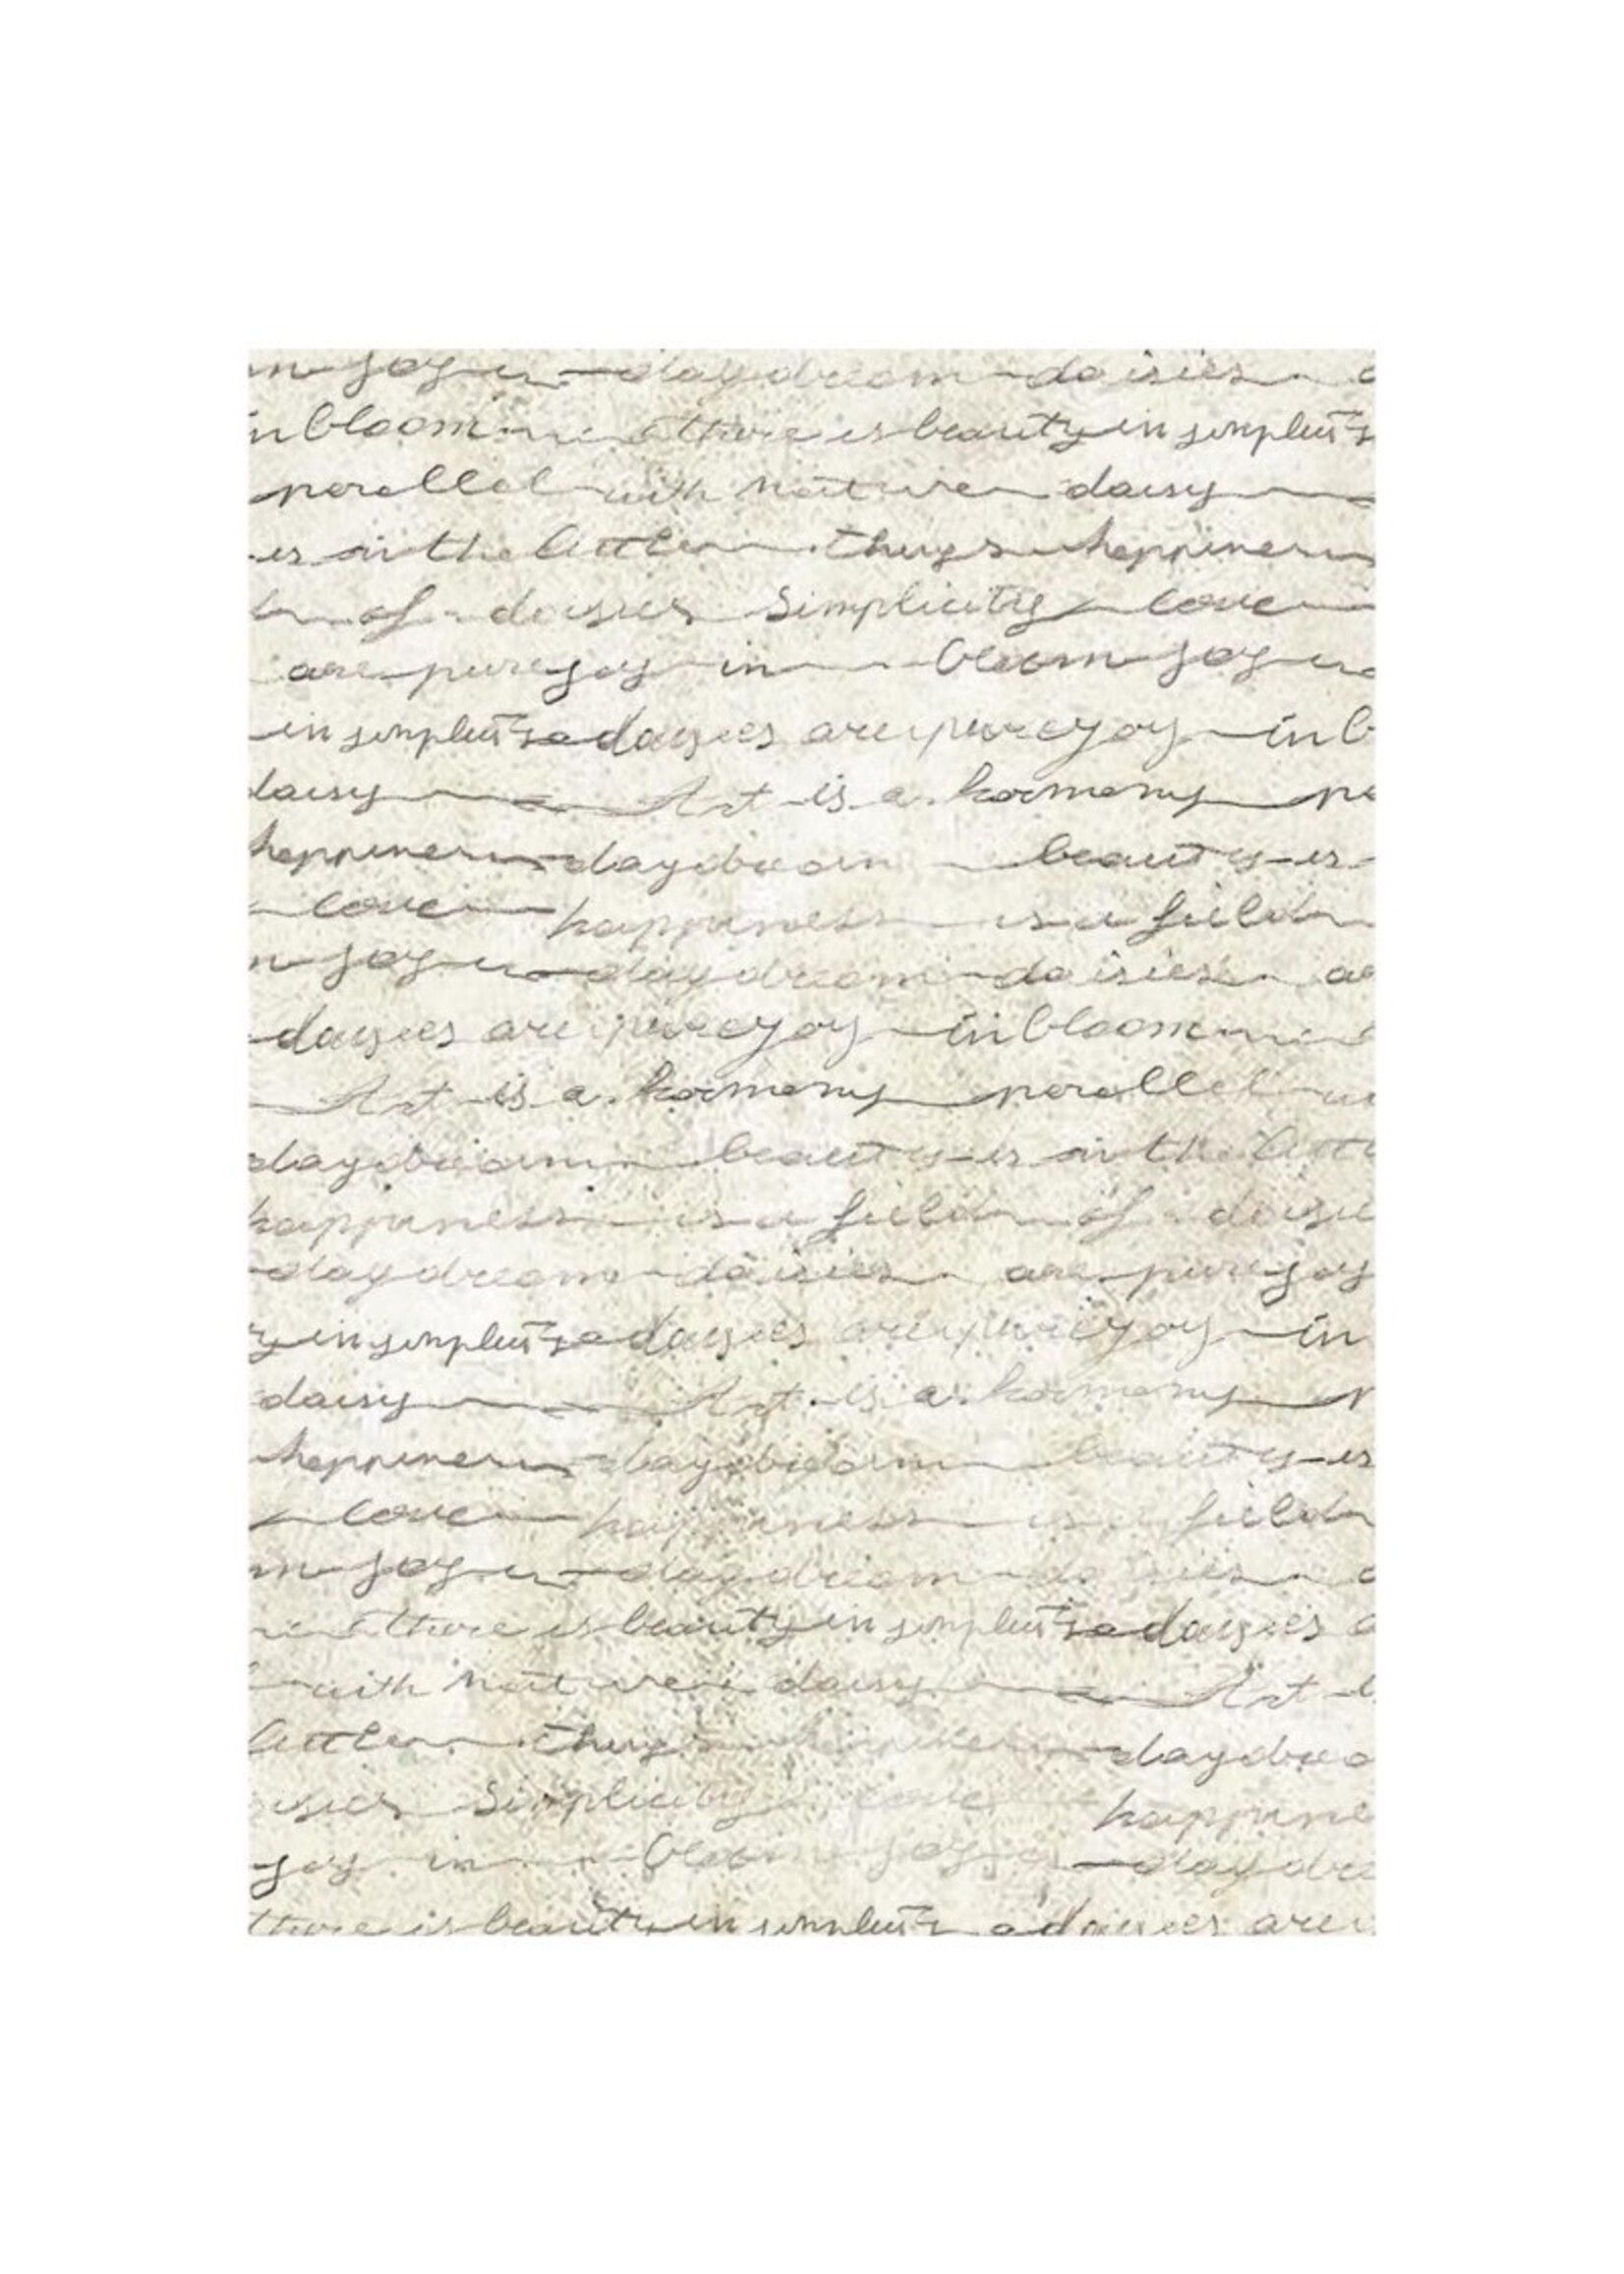 joy daydream daisies
in bloom there is beauty in simplicity
parallel with nature daisy
is in the little things happiness
of daisies simplicity love
are pure joy in bloom joy
in simplicity daisies are pure joy in b
daisy Art is a harmony pa
happiness daydream beauty is
love happiness is a field
joy daydream daisies a
daisies are pure joy in bloom
Art is a harmony parallel
daydream beauty is in the litt
happiness is a field of daisie
daydream daisies are pure joy
in simplicity daisies are pure joy in
daisy Art is a harmony
happiness daydream beauty is
love happiness is a field
joy daydream daisies
there is beauty in simplicity daisies
with nature daisy Art
little things happiness daydrea
simplicity love happine
joy in bloom joy daydre
there is beauty in simplicity daisies are